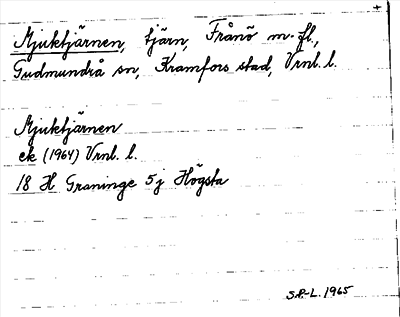 Mjuktjärnen, tjärn, Frånö m. fl.,
Gudmundrå sn, Kramfors stad, Vrnl. l.
Mjuktjärnen
ek (1964) Vrnl. l.
18 H Graninge 5j Högsta
S.P-L. 1965